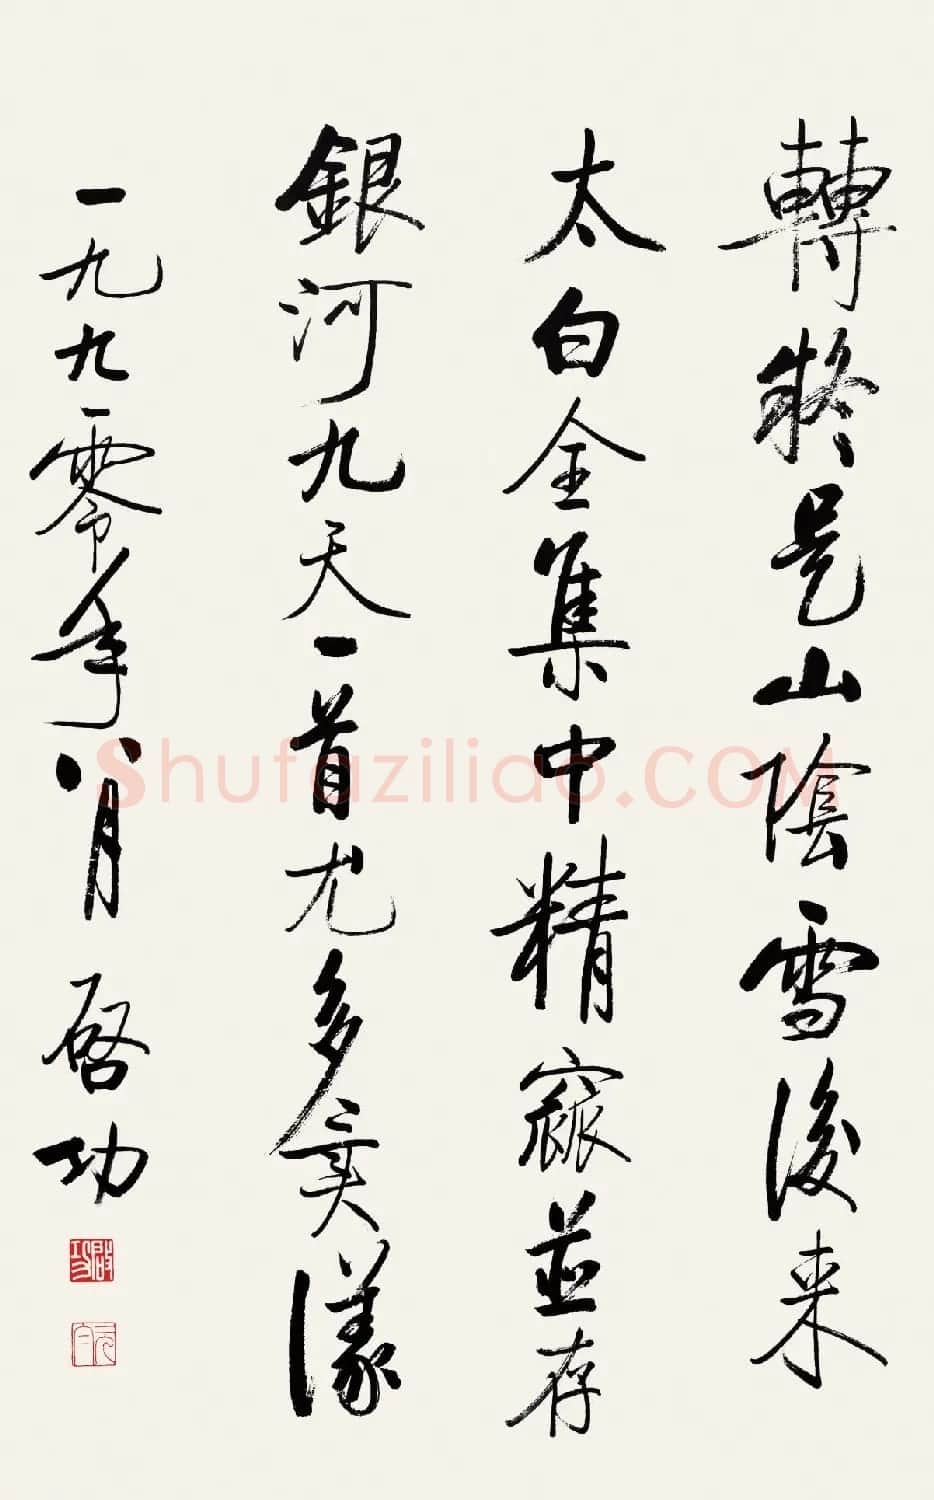 轉疑是山陰雪後來
太白全集中精窳並存
銀河九天一首尤多異議
一九九零年八月 啓功
啓功
元白
Shufaziliao.COM